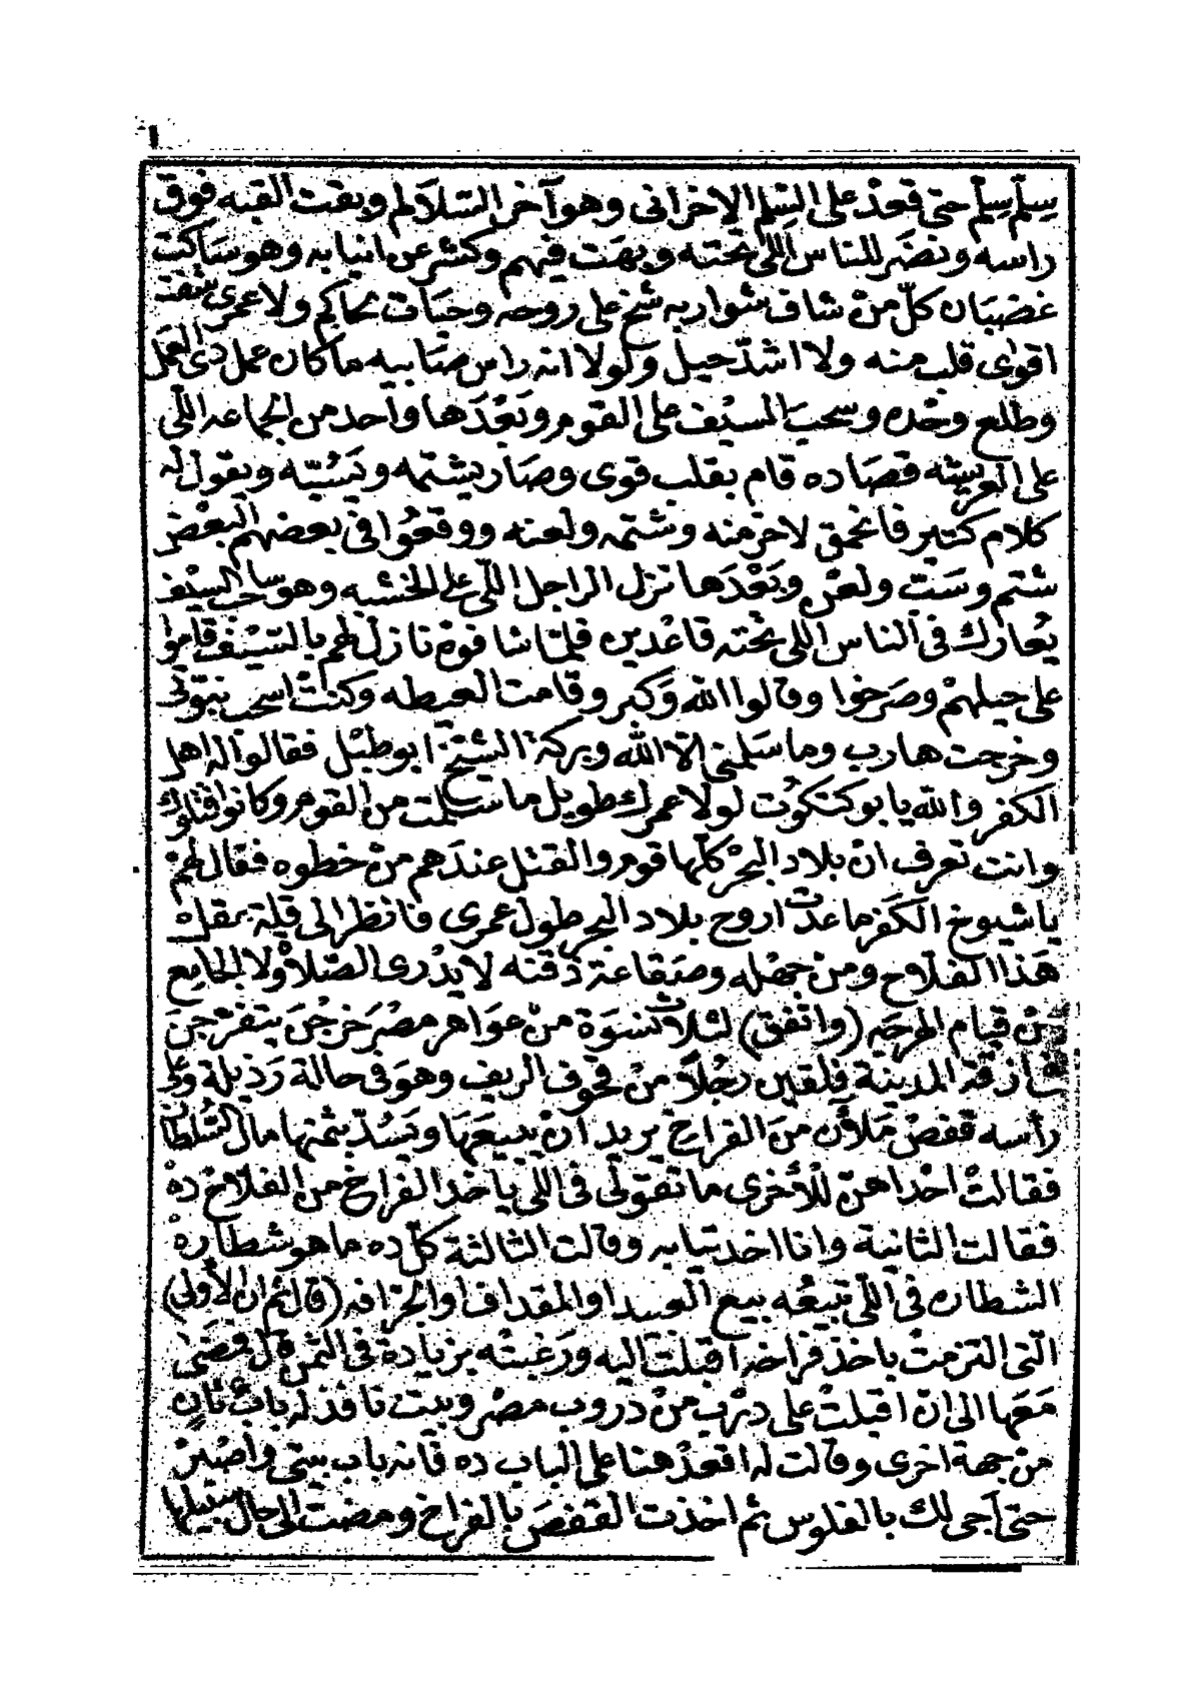 سِلّم سِلّم حتى قعد على السِّلم الاخرانى وهو آخر السّلالم وبقت القبه فوق
راسه ونضَر للناس اللى تحته وبهَت فيهم وكشر عن انيابه وهو ساكت
غضبان كلّ منْ شاف شواربه شخ على روحه وحيات نماكم ولا عمرى شفت
اقوى قلب منه ولا اشدّ حيل ولولا انه راس صابيه ما كان عمل دى العمل
وطلع وحْده وسحبَ السيْف على القوم وبَعْدَها واحد من الجماعه اللّى
على العريشه قصاده قام بقلب قوى وصار يشتمه ويَسُبّه ويقول له
كلام كتير فانحمق لاخر منه وشتمه ولعنه ووقعُوا فى بعضهم البعْض
شتم وسَبّ ولعْن وبَعْدَها نزل الراجل اللّى على الخشبه وهو ساحب السيْف
يُعارك فى الناس اللى تحته قاعْدين فلمّا شافوهْ نازل لهم بالسّيْف قامو
على حيلهمْ وصَرخوا وقالوا الله وَكبر وقامت العيطه وكنتْ اسحب نبّوتى
وخرجت هارب وما سَلمنى الاّ الله وبركة الشيخ ابو طبْل فقالوا له اهل
الكفر والله يا بو كتكوُت لولا عمرك طويل ما سلمت من القوم وكانوا قتلوك
وانت تعرف انّ بلاد البحْر كلّها قوم والقتل عندَهم منْ خطوه فقال لهمْ
يا شيوخ الكَفرْ ما عدْت اروح بلاد البحر طول عمرى فانظر الى قلة عقل
هَذا الفلاّح ومنْ جهْله وصَقاعة ذقنه لا يدْرى الصّلاةْ ولا الجامِع
منْ قيام الهرجَه (واتفق) لثلاث نسْوَة منْ عواهر مصْرَ خرجْنَ يتفرّجنَ
فى ازقة المدينة فلقين رجُلاً منْ قحوف الريف وهوَ فى حالة رَذيلة وعلى
رأسه قفصْ مَلأن منَ الفراخ يريد انْ يبيعَهَا ويَسُدّ بثمنها مال السُلطان
فقالتْ احْداهنّ للْأخرى ما تقولى فى اللى ياخد الفراخ من الفلاّح دهْ
فقالت الثانية وانا اخد تيابه وقالت الثالثة كلّ ده ما هو شطارهْ
الشطاره فى اللّى تبيعُه بيع العبيد او المقداف او الجرّافه (قال ثم انّ الأولى)
الّتى التزمتْ باخذ فراخه اقبلتْ اليه ورَغبتْه بزيادة فى الثمن قال فمضَى
مَعَها الى انْ اقبلتْ على درْب منْ دروب مصْر وبيت نافذ له بابْ ثانٍ
منْ جهة اخرى وقالت له اقعدْ هنا على الباب ده فانه باب بيتى واصْبرْ
حتى آجى لك بالفلوس ثم اخذت القفصَ بالفراخ ومضت الى حال سبيلها